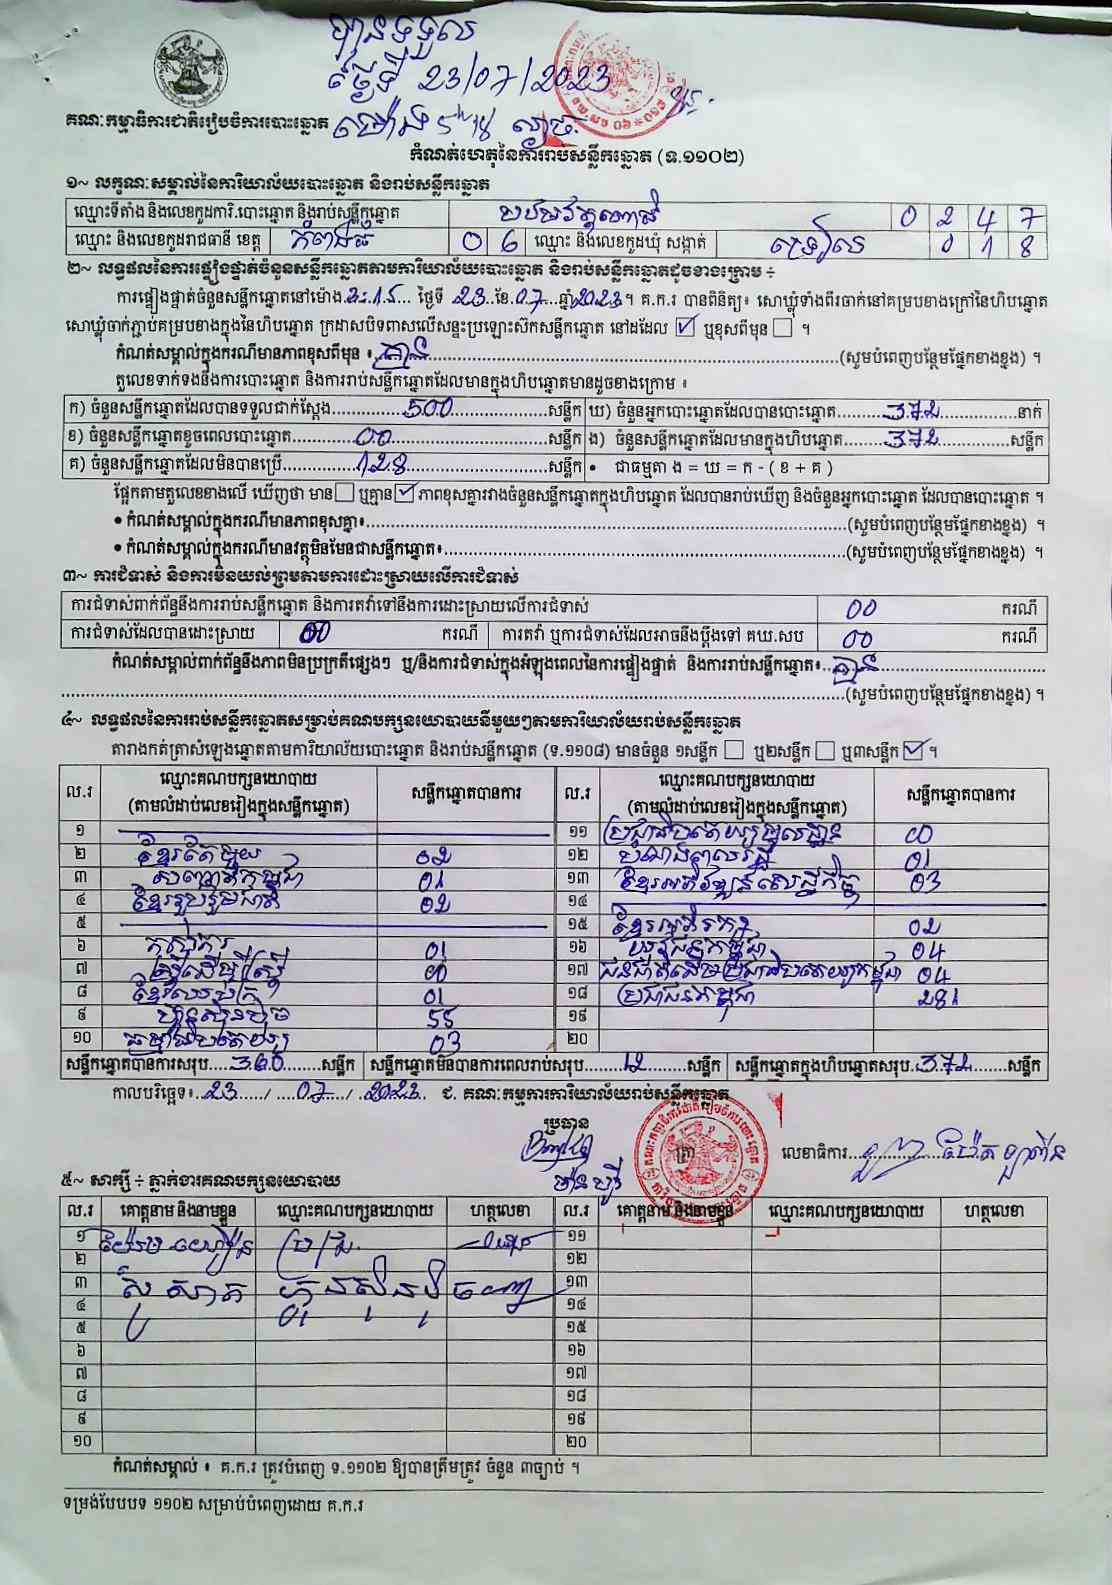 បានទទួល
ថ្ងៃទី 23/07/2023
ម៉ោង 5h 18 ល្ងាច
គណៈកម្មាធិការជាតិរៀបចំការបោះឆ្នោត
កំណត់ហេតុនៃការរាប់សន្លឹកឆ្នោត (ទ.១១០២)
១~ លក្ខណៈសម្គាល់នៃការិយាល័យបោះឆ្នោត និងរាប់សន្លឹកឆ្នោត
ឈ្មោះទីតាំង និងលេខកូដការិ.បោះឆ្នោត និងរាប់សន្លឹកឆ្នោត 0 2 4 7
ឈ្មោះ និងលេខកូដរាជធានី ខេត្ត កំពង់ធំ 0 6 ឈ្មោះ និងលេខកូដឃុំ សង្កាត់ ទ្រៀល 0 1 8
២~ លទ្ធផលនៃការផ្ទៀងផ្ទាត់ចំនួនសន្លឹកឆ្នោតតាមការិយាល័យបោះឆ្នោត និងរាប់សន្លឹកឆ្នោតដូចខាងក្រោម ÷
ការផ្ទៀងផ្ទាត់ចំនួនសន្លឹកឆ្នោតនៅម៉ោង 3:15 ថ្ងៃទី 23 ខែ 07 ឆ្នាំ 2023 ។ គ.ក.រ បានពិនិត្យ៖ សោឃ្លុំទាំងពីរចាក់នៅគម្របខាងក្រៅនៃហិបឆ្នោត
សោឃ្លុំចាក់ភ្ជាប់គម្របខាងក្នុងនៃហិបឆ្នោត ក្រដាសបិទពាសលើសន្ទះប្រឡោះស៊កសន្លឹកឆ្នោត នៅដដែល ☑ ឬខុសពីមុន ☐ ។
កំណត់សម្គាល់ក្នុងករណីមានភាពខុសពីមុន ៖ គ្មាន (សូមបំពេញបន្ថែមផ្នែកខាងខ្នង) ។
តួលេខទាក់ទងនឹងការបោះឆ្នោត និងការរាប់សន្លឹកឆ្នោតដែលមានក្នុងហិបឆ្នោតមានដូចខាងក្រោម ៖
ក) ចំនួនសន្លឹកឆ្នោតដែលបានទទួលជាក់ស្តែង 500 សន្លឹក ឃ) ចំនួនអ្នកបោះឆ្នោតដែលបានបោះឆ្នោត 372 នាក់
ខ) ចំនួនសន្លឹកឆ្នោតខូចពេលបោះឆ្នោត 00 សន្លឹក ង) ចំនួនសន្លឹកឆ្នោតដែលមានក្នុងហិបឆ្នោត 372 សន្លឹក
គ) ចំនួនសន្លឹកឆ្នោតដែលមិនបានប្រើ 128 សន្លឹក • ជាធម្មតា ង = ឃ = ក - ( ខ + គ )
ផ្អែកតាមតួលេខខាងលើ ឃើញថា មាន ☐ ឬគ្មាន ☑ ភាពខុសគ្នារវាងចំនួនសន្លឹកឆ្នោតក្នុងហិបឆ្នោត ដែលបានរាប់ឃើញ និងចំនួនអ្នកបោះឆ្នោត ដែលបានបោះឆ្នោត ។
• កំណត់សម្គាល់ក្នុងករណីមានភាពខុសគ្នា៖ (សូមបំពេញបន្ថែមផ្នែកខាងខ្នង) ។
• កំណត់សម្គាល់ក្នុងករណីមានវត្ថុមិនមែនជាសន្លឹកឆ្នោត៖ (សូមបំពេញបន្ថែមផ្នែកខាងខ្នង) ។
៣~ ការជំទាស់ និងការមិនយល់ព្រមតាមការដោះស្រាយលើការជំទាស់
ការជំទាស់ពាក់ព័ន្ធនឹងការរាប់សន្លឹកឆ្នោត និងការតវ៉ាទៅនឹងការដោះស្រាយលើការជំទាស់ 00 ករណី
ការជំទាស់ដែលបានដោះស្រាយ 00 ករណី ការតវ៉ា ឬការជំទាស់ដែលអាចនឹងប្តឹងទៅ គឃ.សប 00 ករណី
កំណត់សម្គាល់ពាក់ព័ន្ធនឹងភាពមិនប្រក្រតីផ្សេងៗ ឬ/និងការជំទាស់ក្នុងអំឡុងពេលនៃការផ្ទៀងផ្ទាត់ និងការរាប់សន្លឹកឆ្នោត៖ គ្មាន
(សូមបំពេញបន្ថែមផ្នែកខាងខ្នង) ។
៤~ លទ្ធផលនៃការរាប់សន្លឹកឆ្នោតសម្រាប់គណបក្សនយោបាយនីមួយៗតាមការិយាល័យរាប់សន្លឹកឆ្នោត
តារាងកត់ត្រាសំឡេងឆ្នោតតាមការិយាល័យបោះឆ្នោត និងរាប់សន្លឹកឆ្នោត (ទ.១១០៨) មានចំនួន ១សន្លឹក ☐ ឬ២សន្លឹក ☐ ឬ៣សន្លឹក ☑ ។
ល.រ ឈ្មោះគណបក្សនយោបាយ (តាមលំដាប់លេខរៀងក្នុងសន្លឹកឆ្នោត) សន្លឹកឆ្នោតបានការ ល.រ ឈ្មោះគណបក្សនយោបាយ (តាមលំដាប់លេខរៀងក្នុងសន្លឹកឆ្នោត) សន្លឹកឆ្នោតបានការ
១ ១១ ប្រជាធិបតេយ្យមូលដ្ឋាន 00
២ ខ្មែរតែមួយ 02 ១២ 01
៣ សញ្ជាតិកម្ពុជា 01 ១៣ ខ្មែរអភិវឌ្ឍន៍សេដ្ឋកិច្ច 03
៤ ខ្មែររួបរួមជាតិ 02 ១៤
៥ ១៥ ខ្មែរអភិរក្ស 02
៦ កសិករ 01 ១៦ យុវជនកម្ពុជា 04
៧ ស្ត្រីដើម្បីស្ត្រី 00 ១៧ ជនជាតិដើមប្រជាធិបតេយ្យកម្ពុជា 04
៨ 01 ១៨ ប្រជាជនកម្ពុជា 281
៩ ហ៊្វុនស៊ិនប៉ិច 55 ១៩
១០ ធម្មាធិបតេយ្យ 03 ២០
សន្លឹកឆ្នោតបានការសរុប 360 សន្លឹក សន្លឹកឆ្នោតមិនបានការពេលរាប់សរុប 12 សន្លឹក សន្លឹកឆ្នោតក្នុងហិបឆ្នោតសរុប 372 សន្លឹក
កាលបរិច្ឆេទ៖ 23 / 07 / 2023 ជ. គណៈកម្មការការិយាល័យរាប់សន្លឹកឆ្នោត
ប្រធាន
ត្រា
លេខាធិការ
៥~ សាក្សី ÷ ភ្នាក់ងារគណបក្សនយោបាយ
ល.រ គោត្តនាម និងនាមខ្លួន ឈ្មោះគណបក្សនយោបាយ ហត្ថលេខា ល.រ គោត្តនាម និងនាមខ្លួន ឈ្មោះគណបក្សនយោបាយ ហត្ថលេខា
១ ១១
២ ១២
៣ ហ៊្វុនស៊ិនប៉ិច ១៣
៤ ១៤
៥ ១៥
៦ ១៦
៧ ១៧
៨ ១៨
៩ ១៩
១០ ២០
កំណត់សម្គាល់ ៖ គ.ក.រ ត្រូវបំពេញ ទ.១១០២ ឱ្យបានត្រឹមត្រូវ ចំនួន ៣ច្បាប់ ។
ទម្រង់បែបបទ ១១០២ សម្រាប់បំពេញដោយ គ.ក.រ